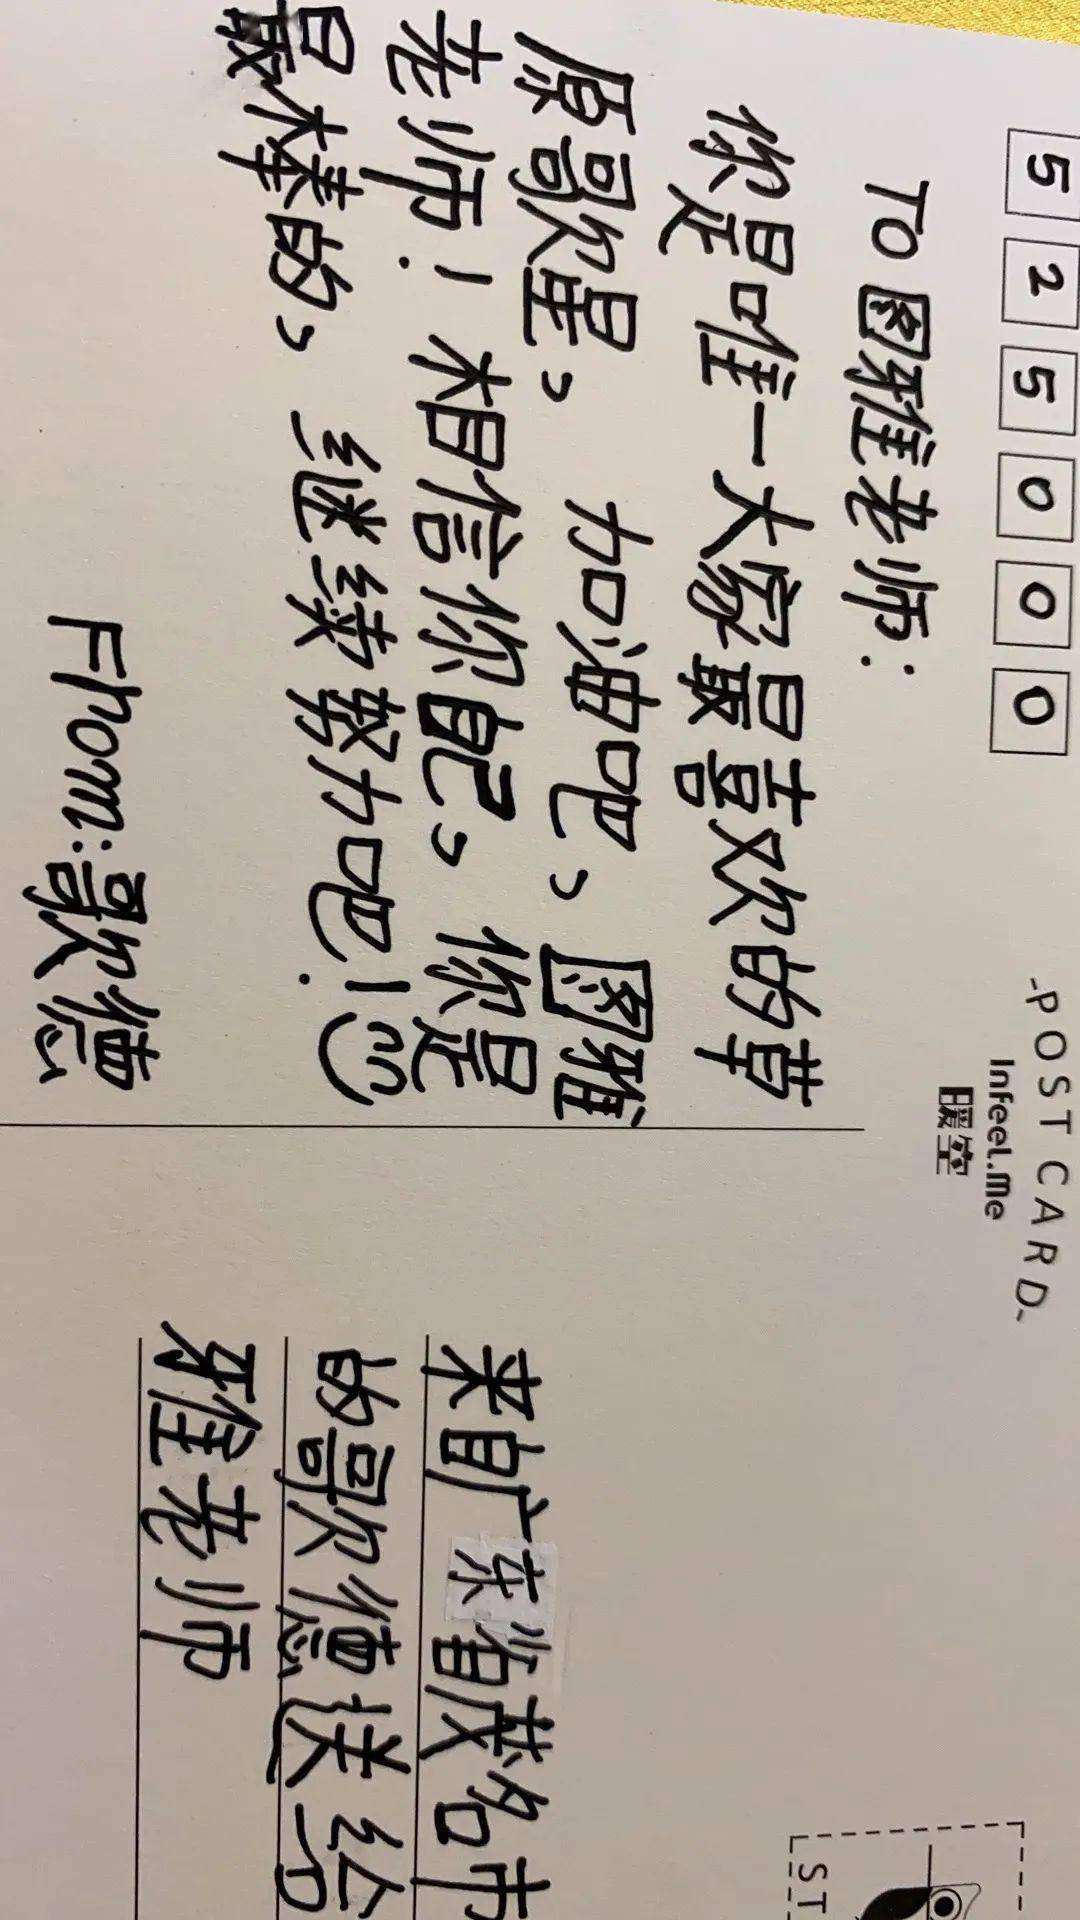 525000
-POST CARD-
Infeel.me
暖空
TO 图雅老师:
你是唯一大家最喜欢的草
原歌星, 加油吧, 图雅
老师! 相信你自己, 你是
最棒的, 继续努力吧!
Fhom:歌德
来自广东省茂名市
的歌德送给
雅老师
ST